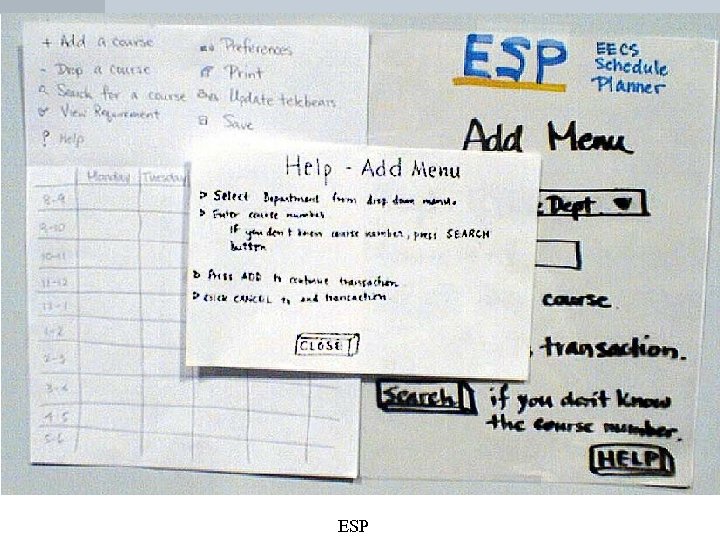 + Add a course
- Drop a course
Search for a course
View Requirement
? Help
Preferences
Print
Update telebears
Save
Monday Tuesday
8-9
9-10
10-11
11-12
12-1
1-2
2-3
3-4
4-5
5-6
ESP
EECS
Schedule
Planner
Add Menu
Dept. ▼
course.
transaction.
Search if you don't know
the course number.
HELP
Help - Add Menu
Select Department from drop down menu.
Enter course number
if you don't know course number, press SEARCH
button
Press ADD to continue transaction
click CANCEL to end transaction.
CLOSE
ESP